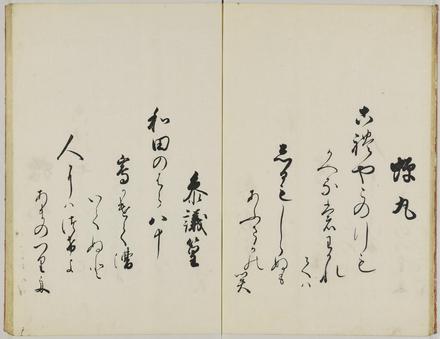 蝉丸
古禮やこの行も
かへるもわかれ
てハ
志るもしらぬも
あふさかの関
参議篁
和田のはら八十
嶋かけて漕
いてぬと
人にハつけよ
あまのつり舟